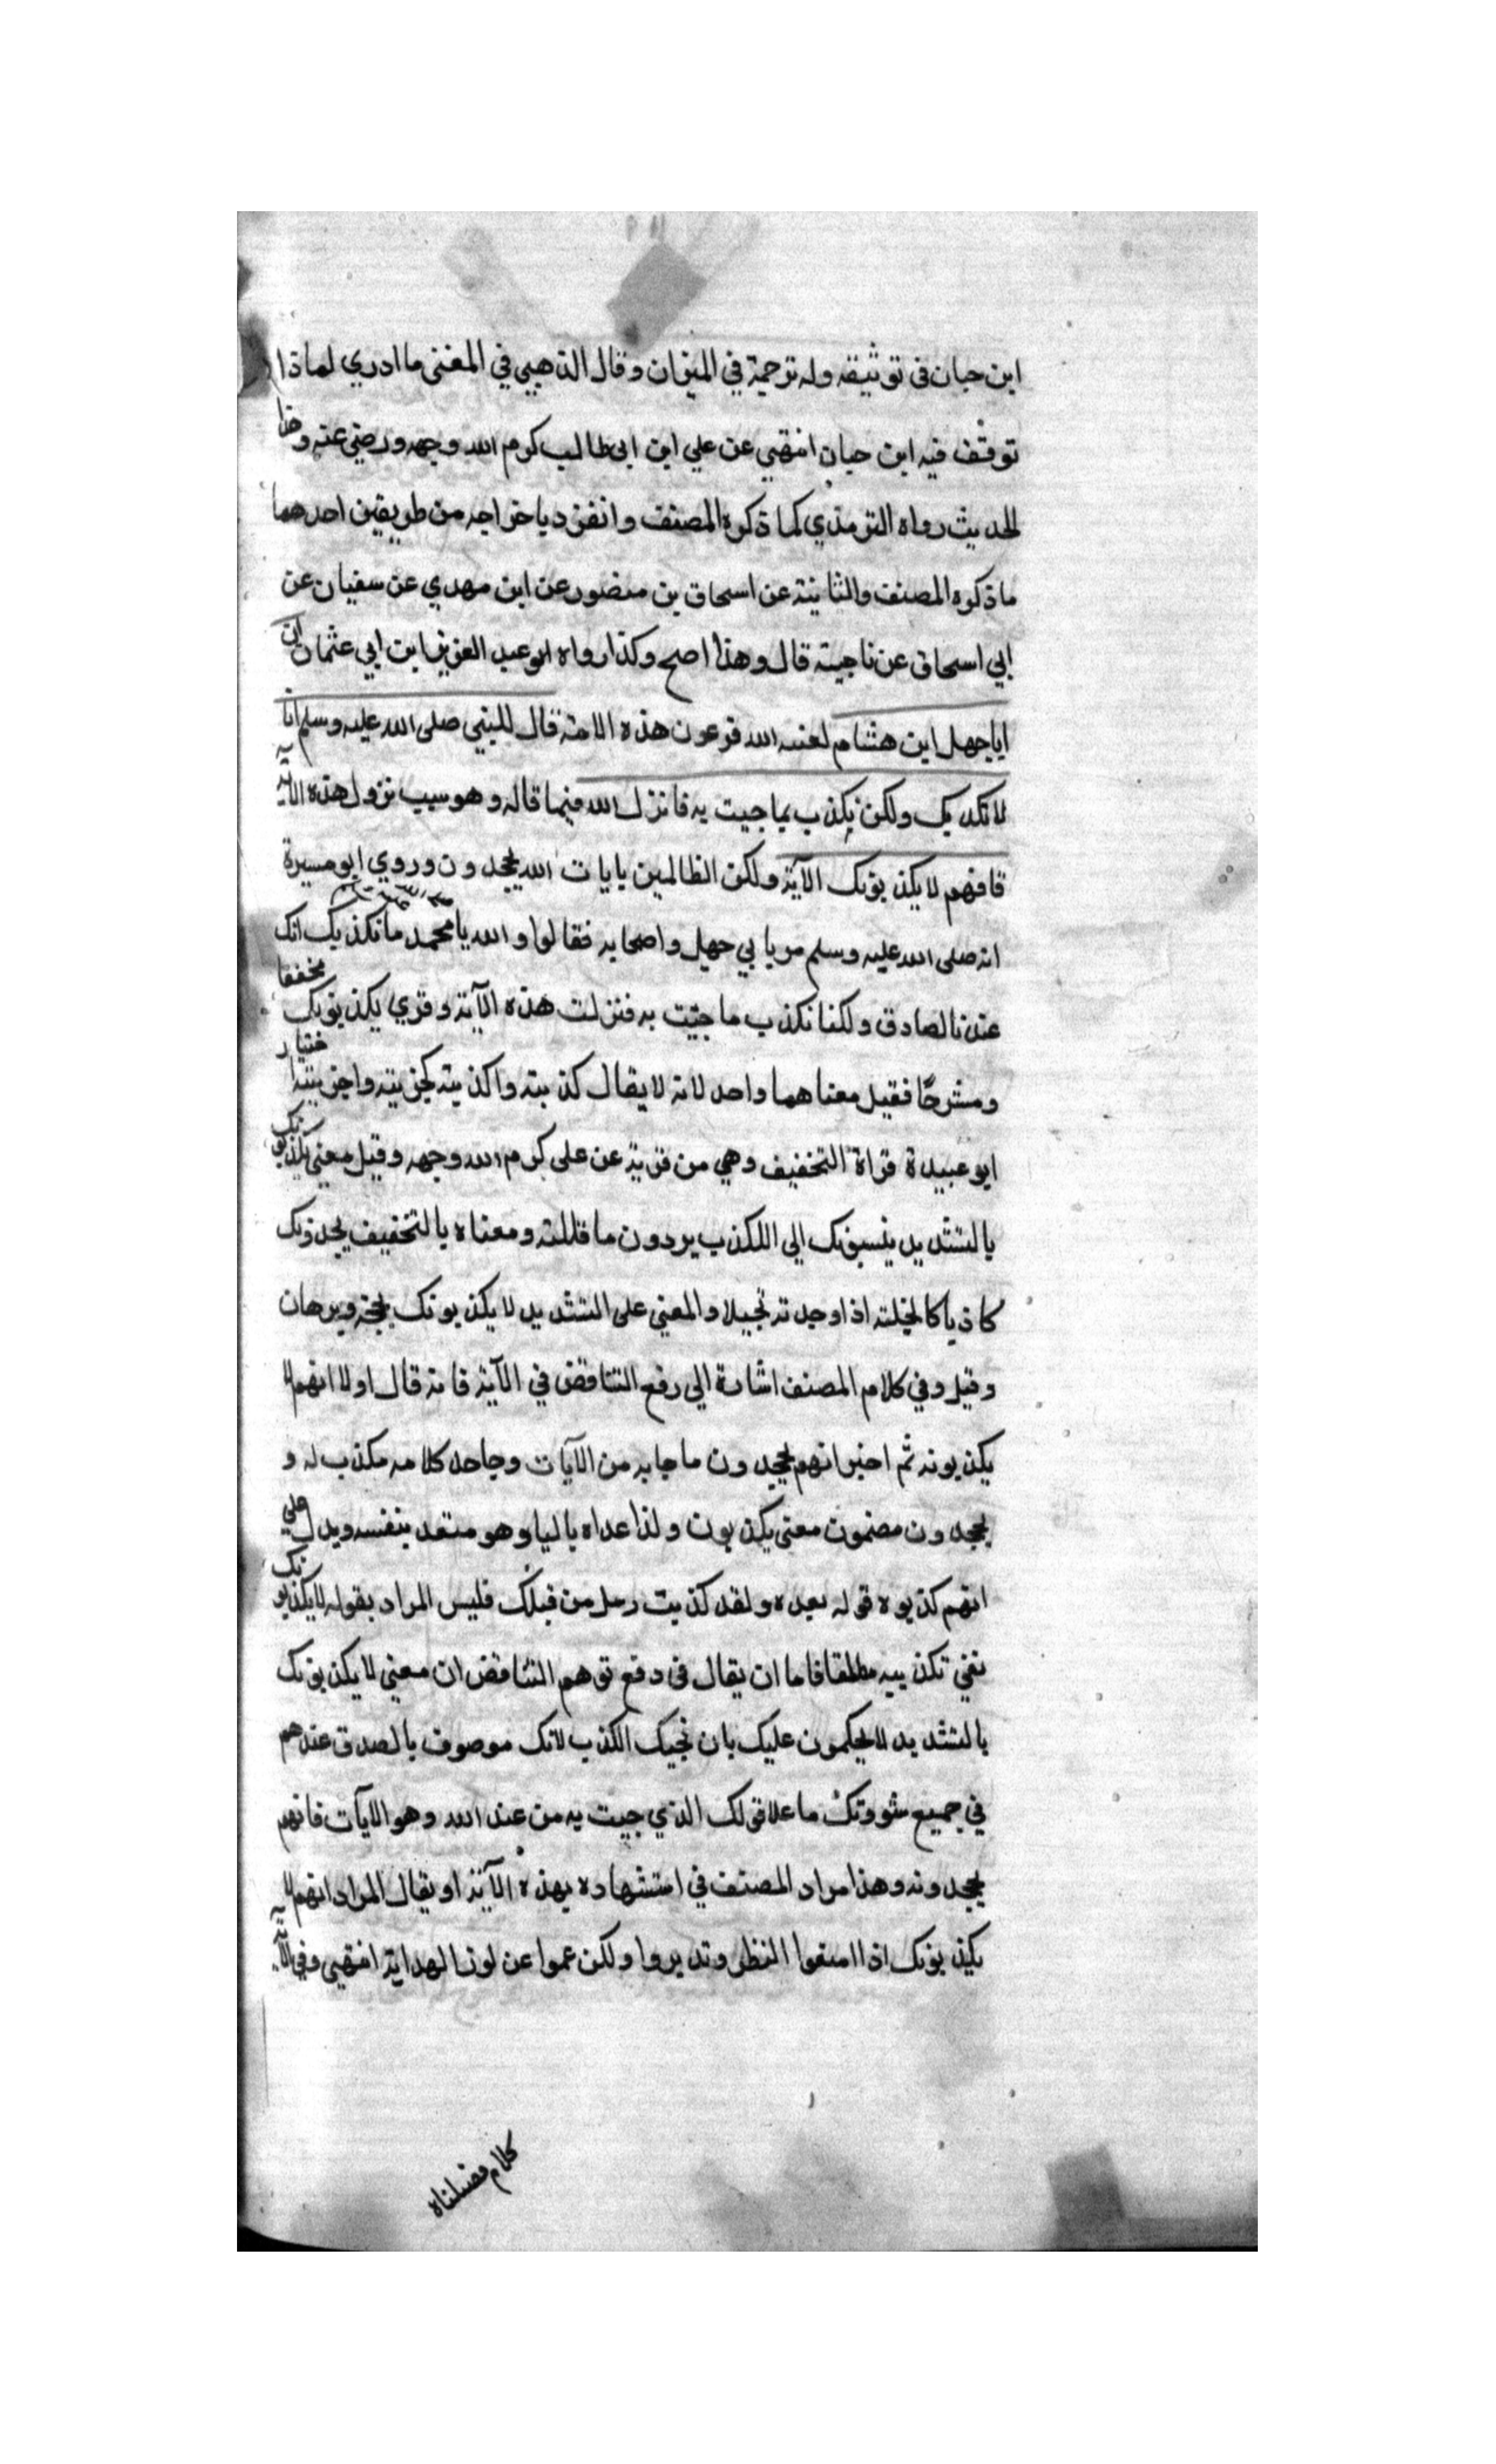 ابن حبان في توثيقه وله ترجمة في الميزان وقال الذهبي في المغني ما ادري لماذا
توقف فيه ابن حبان انتهي عن علي ابن ابي طالب كرم الله وجهه ورضي عنه وهذا
الحديث رواه الترمذي كما ذكره المصنف وانفرد باخراجه من طريقين احدهما
ما ذكره المصنف والثانية عن اسحاق بن منصور عن ابن مهدي عن سفيان عن
ابي اسحاق عن ناجية قال وهذا اصح وكذا رواه ابو عبد العزيز ابن ابي عثمان ان
ابا جهل ابن هشام لعنه الله فرعون هذه الامة قال للنبي صلى الله عليه وسلم انا
لا نكذبك ولكن نكذب بما جيت به فانزل الله فيما قاله وهو سبب نزول هذه الاية
فانهم لا يكذبونك الآية ولكن الظالمين بايات الله يجحدون وروي ابو ميسرة
انه صلى الله عليه وسلم مر بابي جهل واصحابه فقالوا والله يا محمد ما نكذبك انك
عندنا لصادق ولكنا نكذب ما جئت به فنزلت هذه الآية وقري يكذبونك مخففا
ومشرحا فقيل معناهما واحد لانه لا يقال كذبته واكذبته كجزيته واجزيته اختيار
ابو عبيدة قراة التخفيف وهي مروية عن على كرم الله وجهه وقيل معنى يكذبونك
بالتشديد ينسبونك الي اللكذب يردون ما قللته ومعناه بالتخفيف يجدونك
كاذبا كالخلته اذا وجدته تجيلا والمعني على التشديد لا يكذبونك بحجة وبرهان
وقيل وفي كلام المصنف اشارة الي رفع التناقض في الآية فانه قال اولا انهم لا
يكذبونه ثم اخبر انهم يجحدون ما جا به من الآيات وجاحد كلامه مكذب له و
يجحدون مضمون معني يكذبون ولذا عداه باليا وهو متعد بنفسه ويدل علي
انهم كذبوه قوله بعده ولقد كذبت رسل من قبلك فليس المراد بقوله لا يكذبونك
نفي تكذيبه مطلقا فاما ان يقال في دفع توهم التناقض ان معني لا يكذبونك
بالتشديد لا يحكمون عليك بان نجيك الكذب لانك موصوف بالصدق عندهم
في جميع شووتك ما علا قولك الذي جيت به من عند الله وهو الايآت فانهم
يجحدونه وهذا مراد المصنف في استشهاده بهذه الآية او يقال المراد انهم لا
يكذبونك اذا امنعوا النظر وتدبروا ولكن عموا عن لون الهداية انتهي وفي الآية
كلام فضلناه